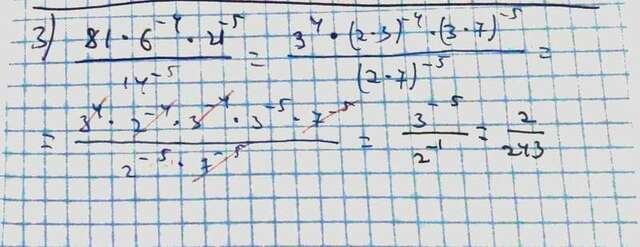 3) (81 · 6⁻⁴ · 21⁻⁵) / 14⁻⁵ = (3⁴ · (2·3)⁻⁴ · (3·7)⁻⁵) / (2·7)⁻⁵ =
= (3⁴ · 2⁻⁴ · 3⁻⁴ · 3⁻⁵ · 7⁻⁵) / (2⁻⁵ · 7⁻⁵) = 3⁻⁵ / 2⁻¹ = 2 / 243